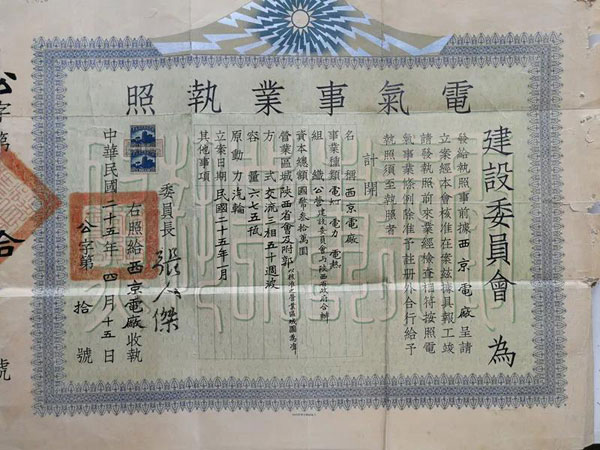 電氣事業執照
建設委員會 為
發給執照事前據西京電廠呈請
立案經本會核准在案茲據具報工竣
請發執照前來業經檢查相符按照電
氣事業條例除准予註冊外合行給予
執照須至執照者
計開
名稱 西京電廠
事業種類 電灯 電力 電熱
組織 公營建設委員會與陝西省政府合辦
資本總額 國幣叁拾萬圓
營業區域 陝西省會及附郭以核准之營業區域圖為準
方式 交流三相五十週波
容量 六七五瓩
原動力 汽輪
立案日期 民國二十五年一月
其他事項
委員長 張人傑
右照給西京電廠收執
中華民國二十五年四月十五日
公字第拾號
公字第拾號